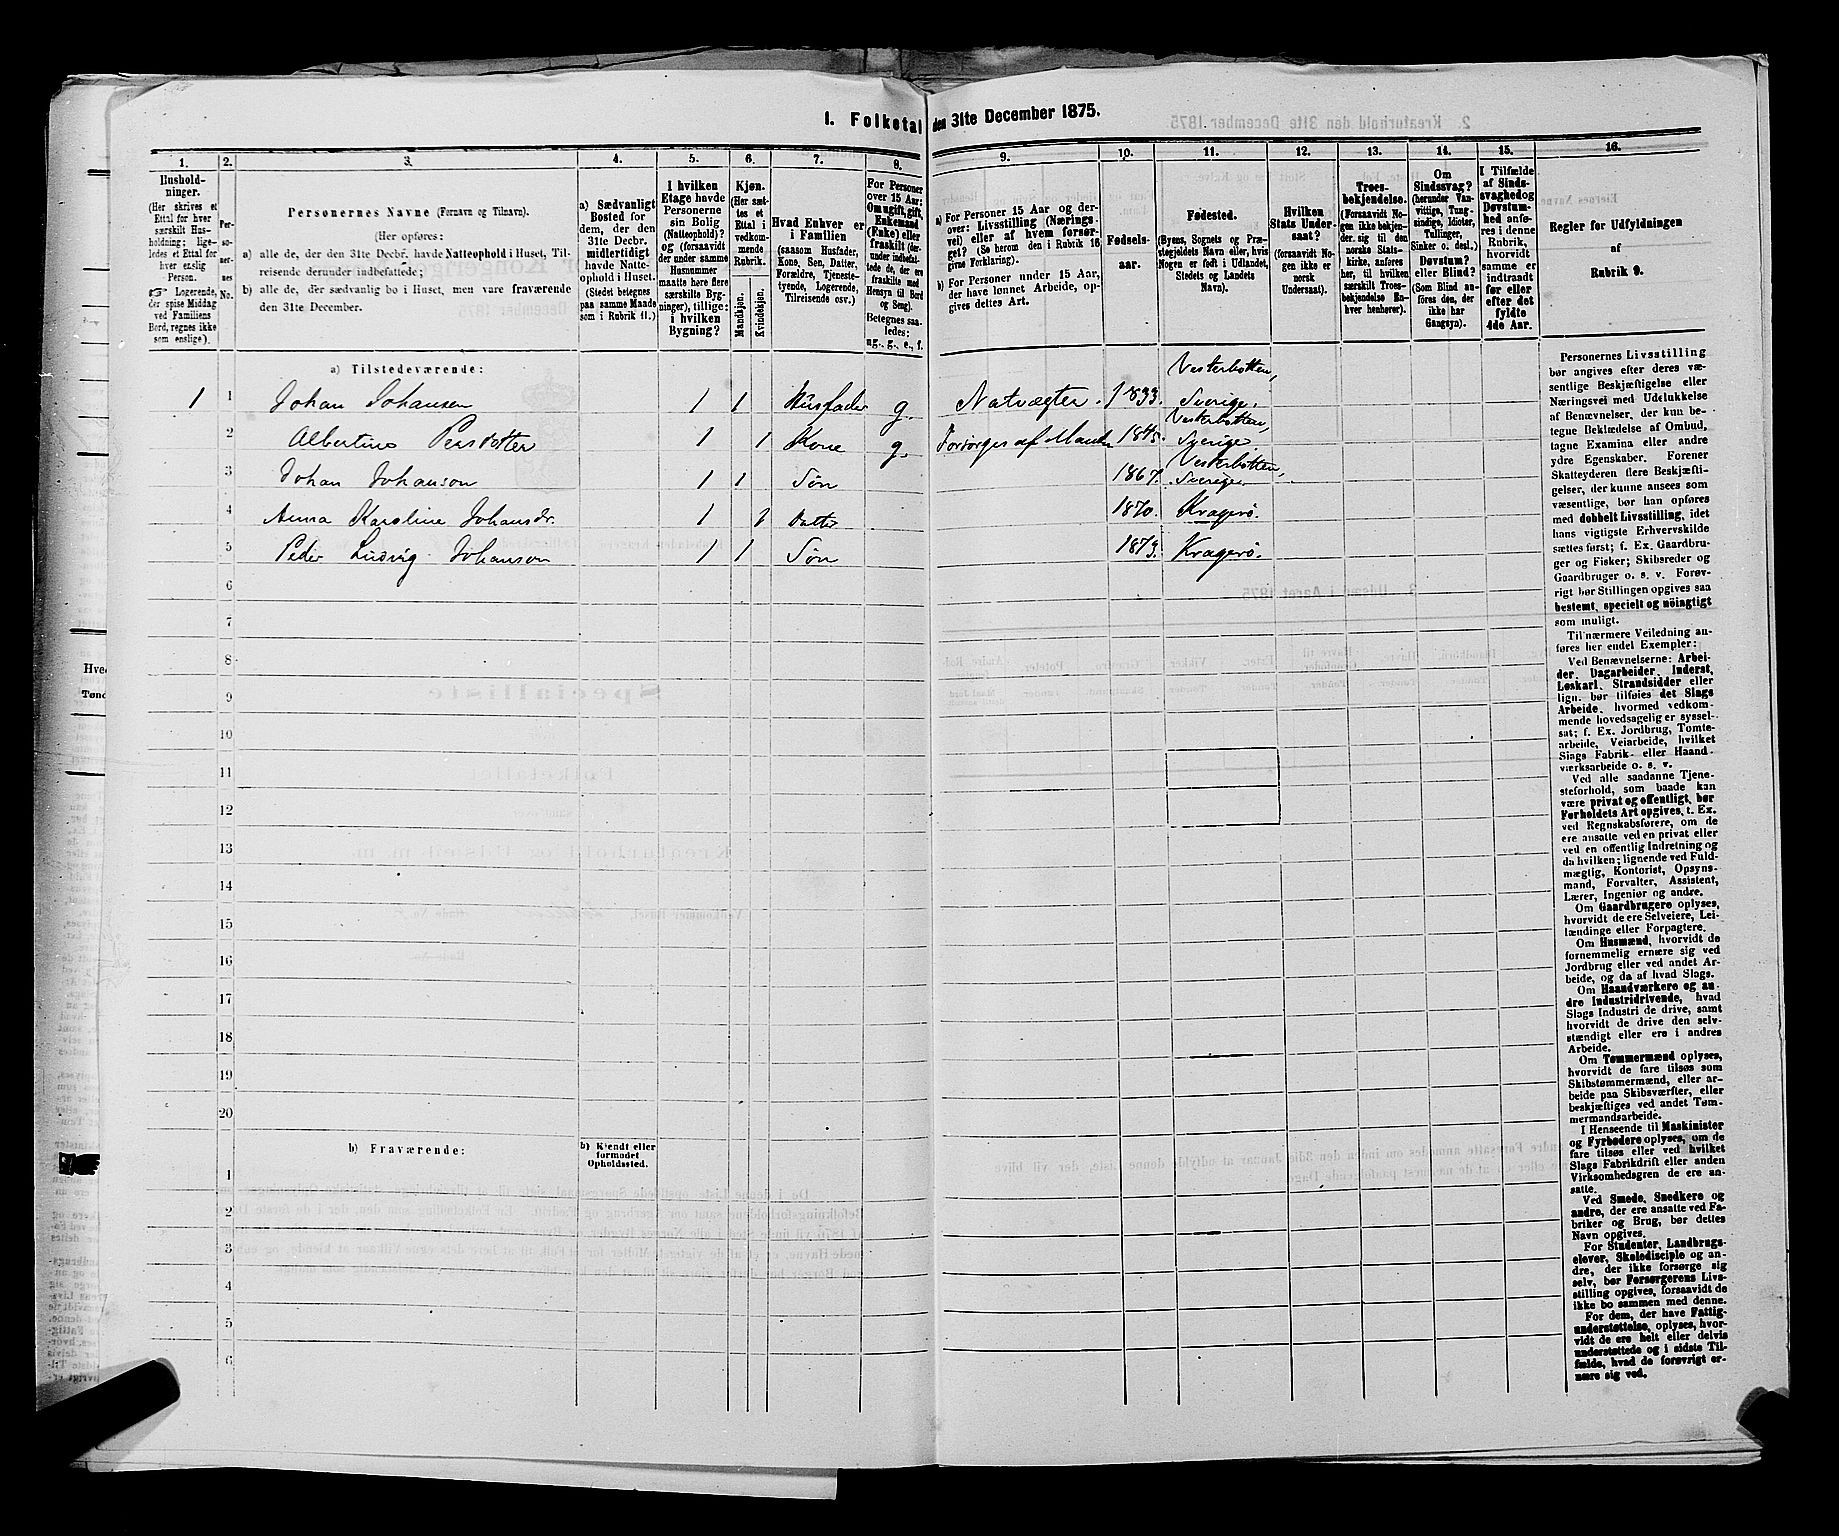 1. Folketal den 31te December 1875.
1. 2. 3. 4. 5. 6. 7. 8. 9. 10. 11. 12. 13. 14. 15. 16.
Hushold-
ninger.
(Her skrives et
Ettal for hver
særskilt Hus-
holdning; lige-
ledes et Ettal for
hver enslig
Person.
☞ Logerende,
der spise Middag
ved Familiens
Bord, regnes ikke
som enslige).
Per-
so-
ner-
nes
No.
Personernes Navne (Fornavn og Tilnavn).
(Her opføres:
a) alle de, der den 31te Decbr. havde Natteophold i Huset, Til-
reisende derunder indbefattede;
b) alle de, der sædvanlig bo i Huset, men vare fraværende
den 31te December.
a) Sædvanligt
Bosted for
dem, der den
31te Decbr.
midlertidigt
havde Natte-
ophold i Huset.
(Stedet betegnes
paa samme Maade
som i Rubrik 11.)
I hvilken
Etage havde
Personerne
sin Bolig
(Natteophold)?
og (forsaavidt
der under samme
Husnummer
maatte høre flere
særskilte Byg-
ninger), tillige:
i hvilken
Bygning?
Kjøn.
(Her sæt-
tes et
Ettal i
vedkom-
mende
Rubrik.
Mandkjøn.
Kvindekjøn.
Hvad Enhver er
i Familien
(saasom Husfader,
Kone, Søn, Datter,
Forældre, Tjeneste-
tyende, Logerende,
Tilreisende osv.)
For Personer
over 15 Aar:
Om ugift, gift,
Enkemand
(Enke) eller
fraskilt (der-
under indbefat-
tede de, der ere
fraskilte med
Hensyn til Bord
og Seng).
Betegnes saa-
ledes:
ug., g., e., f.
a) For Personer 15 Aar og der-
over: Livsstilling (Nærings-
vei) eller af hvem forsør-
get? (Se herom den i Rubrik 16
givne Forklaring).
b) For Personer under 15 Aar,
der have lønnet Arbeide, op-
gives dettes Art.
Fødsels-
aar.
Fødested.
(Byens, Sognets og Præ-
stegjeldets Navn eller, hvis
Nogen er født i Udlandet,
Stedets og Landets
Navn).
Hvilken
Stats Under-
saat?
(forsaavidt No-
gen ikke er
norsk
Undersaat).
Troes-
bekjendelse.
(Forsaavidt No-
gen ikke beken-
der sig til den
norske Stats-
kirke, anføres
her, til hvilken
særskilt Troes-
bekjendelse En-
hver henhører).
Om
Sindssvag?
(herunder Van-
vittige, Tung-
sindige, Idioter,
Tullinger,
Sinker o. desl.)
Døvstum?
eller Blind?
(Som Blind an-
føres den, der
ikke har
Gangsyn).
I Tilfælde
af Sinds-
svaghed og
Døvstum-
hed anfø-
res i denne
Rubrik,
hvorvidt
samme er
indtraadt
før eller
efter det
fyldte
4de Aar.
Regler for Udfyldningen
af
Rubrik 9.
a) Tilstedeværende:
1 1 Johan Johansen 1 1 Husfader g. Natvægter. 1833. Vesterbotten, Sverige.
2 Albertine Persdotter 1 1 Kone g. Forsørges af Manden 1845. Vesterbotten, Sverige
3 Johan Johanson 1 1 Søn 1867. Vesterbotten, Sverige
4 Anna Karoline Johansdr. 1 1 Datter 1870. Kragerø.
5 Peder Ludvig Johanson 1 1 Søn 1873. Kragerø.
6
7
8
9
10
11
12
13
14
15
16
17
18
19
20
b) Fraværende:
b) Kjendt eller
formodet
Opholdssted.
1
2
3
4
5
6
Personernes Livsstilling
bør angives efter deres væ-
sentlige Beskjæftigelse eller
Næringsvei med Udelukkelse
af Benævnelser, der kun be-
tegne Beklædelse af Ombud,
tagne Examina eller andre
ydre Egenskaber. Forener
Skatteyderen flere Beskjæfti-
gelser, der kunne ansees som
væsentlige, bør han opføres
med dobbelt Livsstilling, idet
hans vigtigste Erhvervskilde
sættes først; f. Ex. Gaardbru-
ger og Fisker; Skibsreder og
Gaardbruger o. s. v. Forøv-
rigt bør Stillingen opgives saa
bestemt, specielt og nöiagtigt
som muligt.
Til nærmere Veiledning an-
føres her endel Exempler:
Ved Benævnelserne: Arbei-
der, Dagarbeider, Inderst,
Løskarl, Strandsidder eller
lign. bør tilføies det Slags
Arbeide, hvormed vedkom-
mende hovedsagelig er syssel-
sat; f. Ex. Jordbrug, Tomte-
arbeide, Veiarbeide, hvilket
Slags Fabrik- eller Haand-
værksarbeide o. s. v.
Ved alle saadanne Tjene-
steforhold, som baade kan
være privat og offentligt, bør
Forholdets Art opgives, t. Ex.
ved Regnskabsførere, om de
ere ansatte ved en privat eller
ved en offentlig Indretning og
da hvilken; lignende ved Fuld-
mægtig, Kontorist, Opsyns-
mand, Forvalter, Assistent,
Lærer, Ingeniør og andre.
Om Gaardbrugere oplyses,
hvorvidt de ere Selveiere, Lei-
lændinge eller Forpagtere.
Om Husmænd, hvorvidt de
fornemmelig ernære sig ved
Jordbrug eller ved andet Ar-
beide, og da af hvad Slags.
Om Haandværkere og an-
dre Industridrivende, hvad
Slags Industri de drive, samt
hvorvidt de drive den selv-
stændigt eller ere i andres
Arbeide.
Om Tømmermænd oplyses,
hvorvidt de fare tilsøs som
Skibstømmermænd, eller ar-
beide paa Skibsværfter, eller
beskjæftiges ved andet Tøm-
mermandsarbeide.
I Henseende til Maskinister
og Fyrbødere oplyses, om de
fare tilsøs eller ved hvilket
Slags Fabrikdrift eller anden
Virksomhedsgren de ere an-
satte.
Ved Smede, Snedkere og
andre, der ere ansatte ved Fa-
briker og Brug, bør dettes
Navn opgives.
For Studenter, Landbrugs-
elever, Skoledisciple og an-
dre, der ikke forsørge sig
selv, bør Forsørgerens Livs-
stilling opgives, forsaavidt de
ikke bo sammen med denne.
For dem, der have Fattig-
understøttelse, oplyses, hvor-
vidt de ere helt eller delvis
understøttede og i sidste Til-
fælde, hvad de forøvrigt er-
nære sig ved.